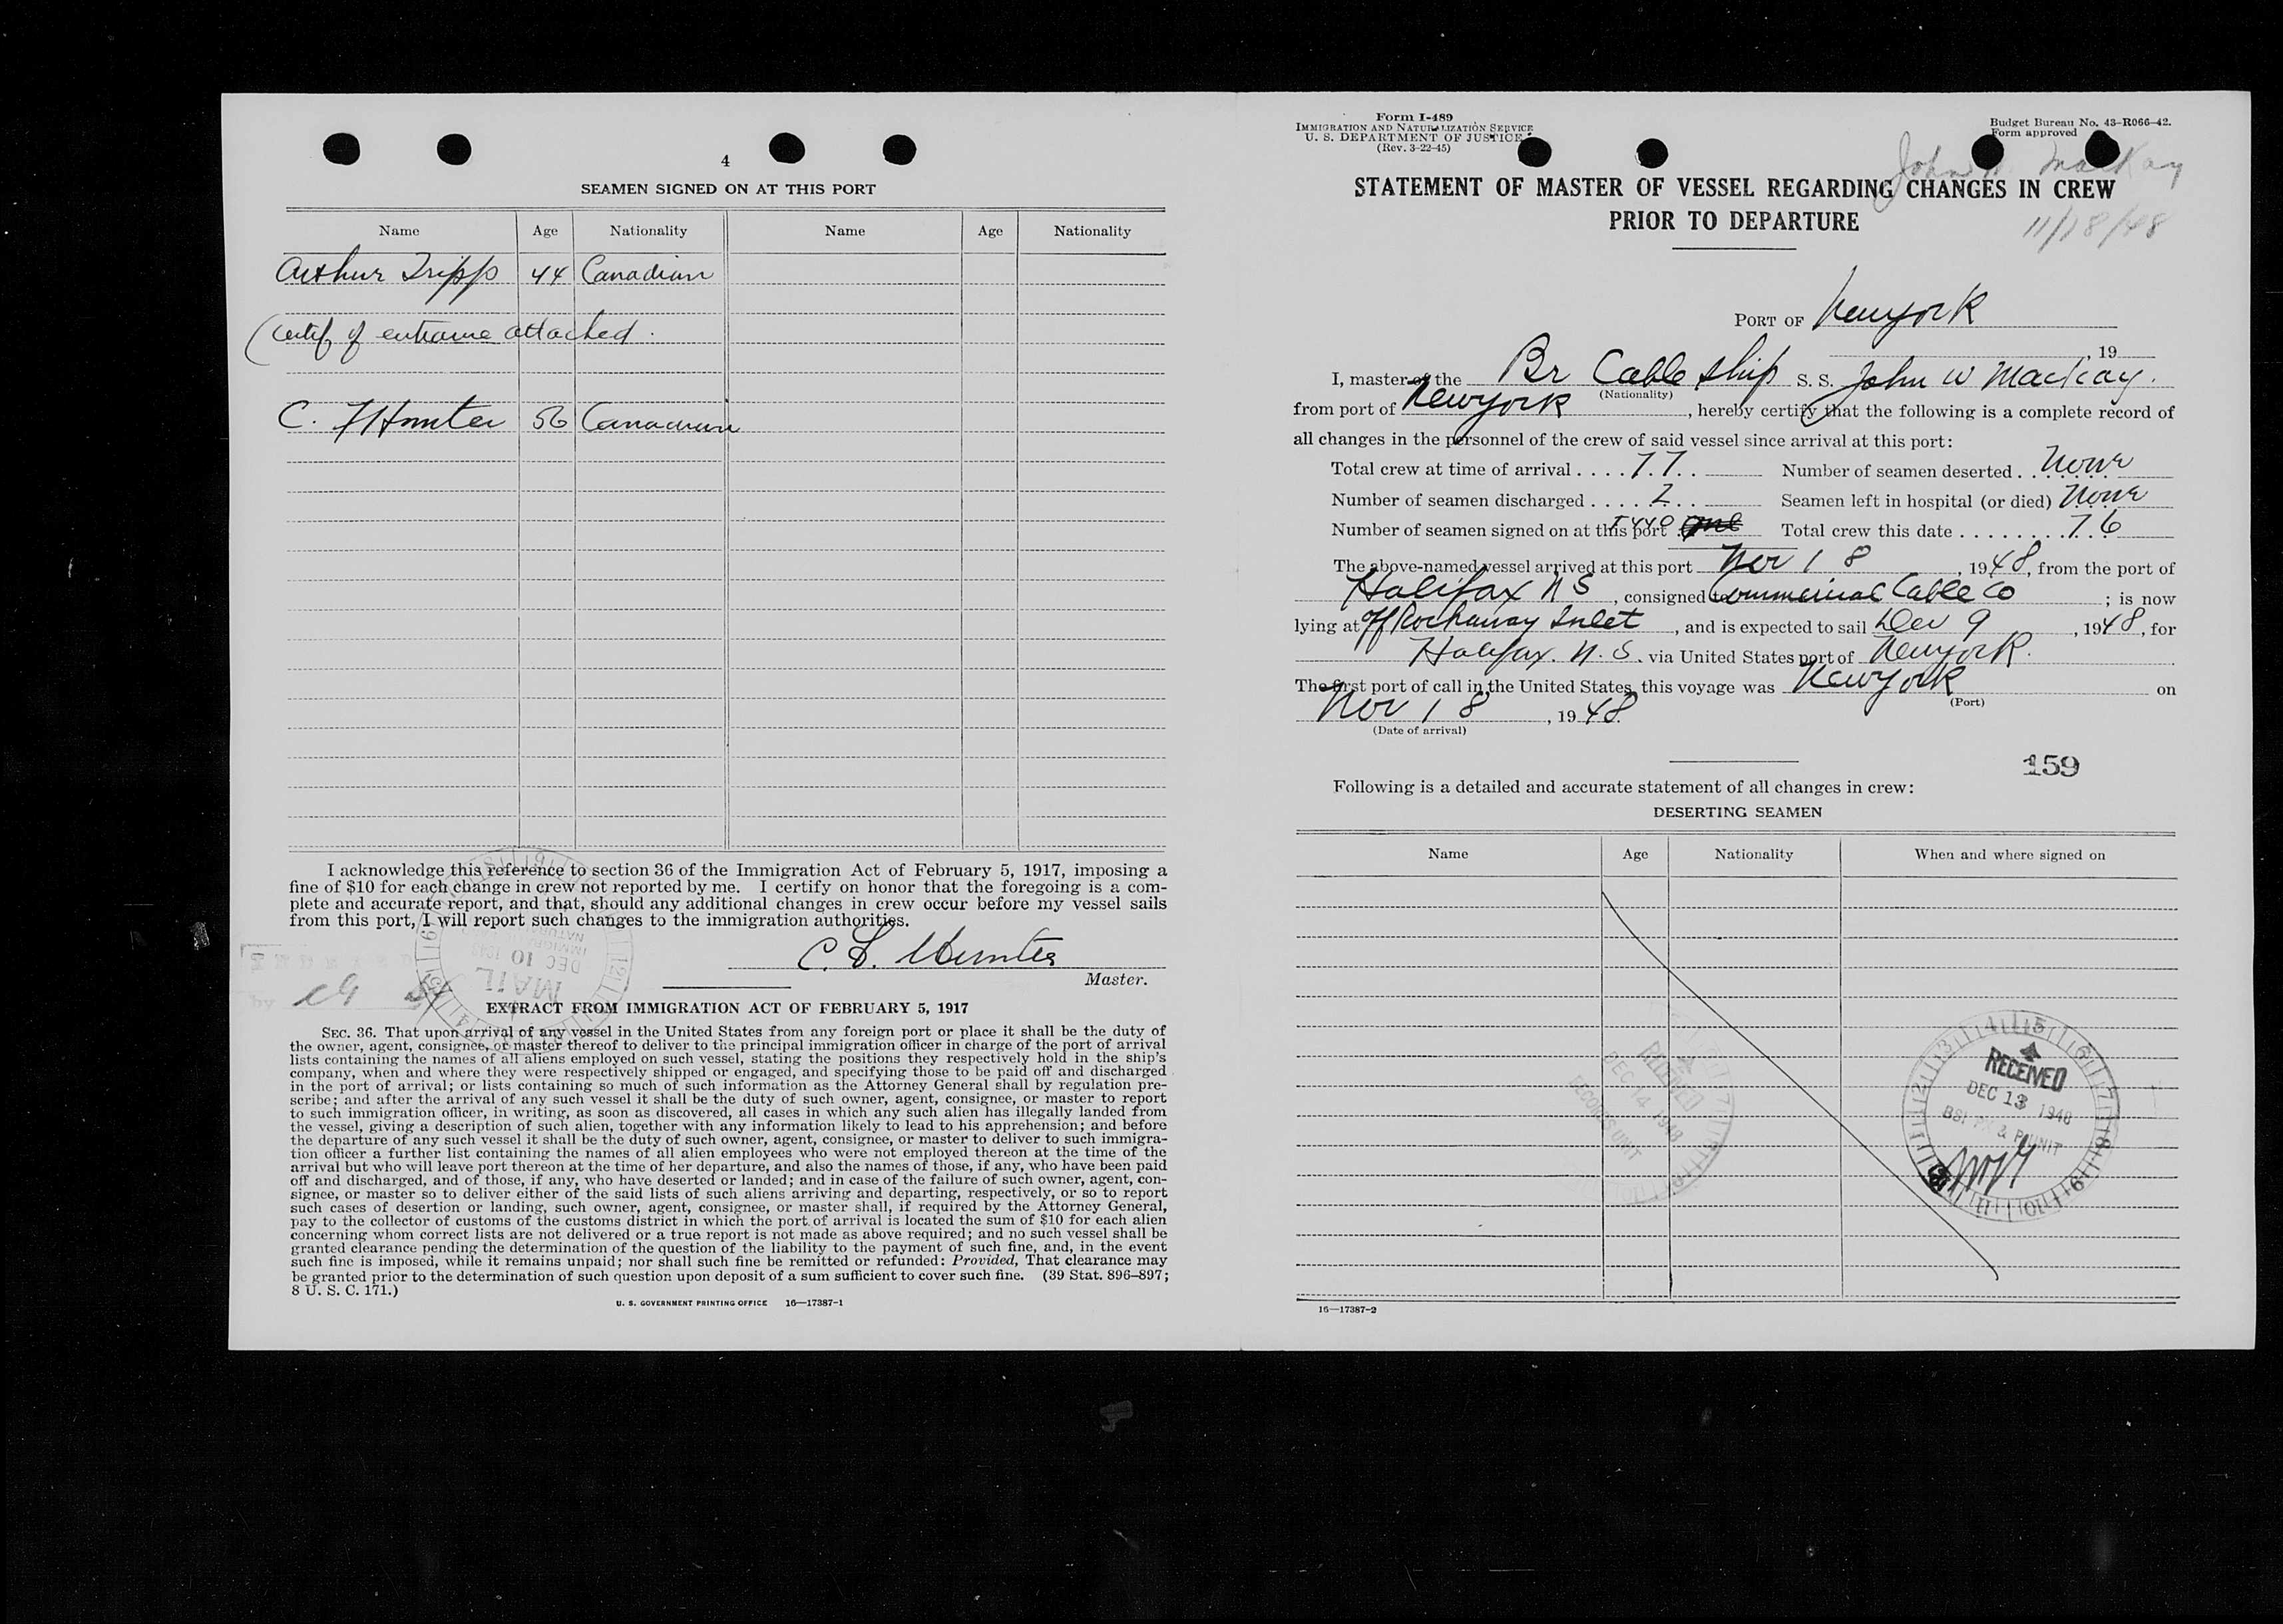 4
SEAMEN SIGNED ON AT THIS PORT
Name Age Nationality Name Age Nationality
Arthur Tripp 44 Canadian
(Certif of entrance attached.
C. Hunter 56 Canadian
I acknowledge this reference to section 36 of the Immigration Act of February 5, 1917, imposing a
fine of $10 for each change in crew not reported by me. I certify on honor that the foregoing is a com-
plete and accurate report, and that, should any additional changes in crew occur before my vessel sails
from this port, I will report such changes to the immigration authorities.
C. Hunter
Master.
MAIL
DEC 10 1948
by
EXTRACT FROM IMMIGRATION ACT OF FEBRUARY 5, 1917
SEC. 36. That upon arrival of any vessel in the United States from any foreign port or place it shall be the duty of
the owner, agent, consignee, or master thereof to deliver to the principal immigration officer in charge of the port of arrival
lists containing the names of all aliens employed on such vessel, stating the positions they respectively hold in the ship's
company, when and where they were respectively shipped or engaged, and specifying those to be paid off and discharged
in the port of arrival; or lists containing so much of such information as the Attorney General shall by regulation pre-
scribe; and after the arrival of any such vessel it shall be the duty of such owner, agent, consignee, or master to report
to such immigration officer, in writing, as soon as discovered, all cases in which any such alien has illegally landed from
the vessel, giving a description of such alien, together with any information likely to lead to his apprehension; and before
the departure of any such vessel it shall be the duty of such owner, agent, consignee, or master to deliver to such immigra-
tion officer a further list containing the names of all alien employees who were not employed thereon at the time of the
arrival but who will leave port thereon at the time of her departure, and also the names of those, if any, who have been paid
off and discharged, and of those, if any, who have deserted or landed; and in case of the failure of such owner, agent, con-
signee, or master so to deliver either of the said lists of such aliens arriving and departing, respectively, or so to report
such cases of desertion or landing, such owner, agent, consignee, or master shall, if required by the Attorney General,
pay to the collector of customs of the customs district in which the port of arrival is located the sum of $10 for each alien
concerning whom correct lists are not delivered or a true report is not made as above required; and no such vessel shall be
granted clearance pending the determination of the question of the liability to the payment of such fine, and, in the event
such fine is imposed, while it remains unpaid; nor shall such fine be remitted or refunded: Provided, That clearance may
be granted prior to the determination of such question upon deposit of a sum sufficient to cover such fine. (39 Stat. 896–897;
8 U. S. C. 171.)
U. S. GOVERNMENT PRINTING OFFICE 16—17387-1
Form I-489
IMMIGRATION AND NATURALIZATION SERVICE
U. S. DEPARTMENT OF JUSTICE
(Rev. 3-22-45)
Budget Bureau No. 43-R066-42.
Form approved
John W. MacKay
11/18/48
STATEMENT OF MASTER OF VESSEL REGARDING CHANGES IN CREW
PRIOR TO DEPARTURE
PORT OF New york
, 19
I, master of the Br Cable ship S. S. John W Mackay.
(Nationality)
from port of New york, hereby certify that the following is a complete record of
all changes in the personnel of the crew of said vessel since arrival at this port:
Total crew at time of arrival . . . . 77 . . Number of seamen deserted . None
Number of seamen discharged . . . . 2 . . Seamen left in hospital (or died) None
Number of seamen signed on at this port Total crew this date . . . . . . . . 76
The above-named vessel arrived at this port Nov 18, 1948, from the port of
Halifax N S, consigned to Commercial Cable Co; is now
lying at off Rockaway Inlet, and is expected to sail Dec 9, 1948, for
Halifax. N. S. via United States port of New york.
The first port of call in the United States, this voyage was New york on
(Port)
Nov 18, 1948
(Date of arrival)
159
Following is a detailed and accurate statement of all changes in crew:
DESERTING SEAMEN
Name Age Nationality When and where signed on
RECEIVED
DEC 14 1948
RECORDS UNIT
RECEIVED
DEC 13 1948
16—17387-2